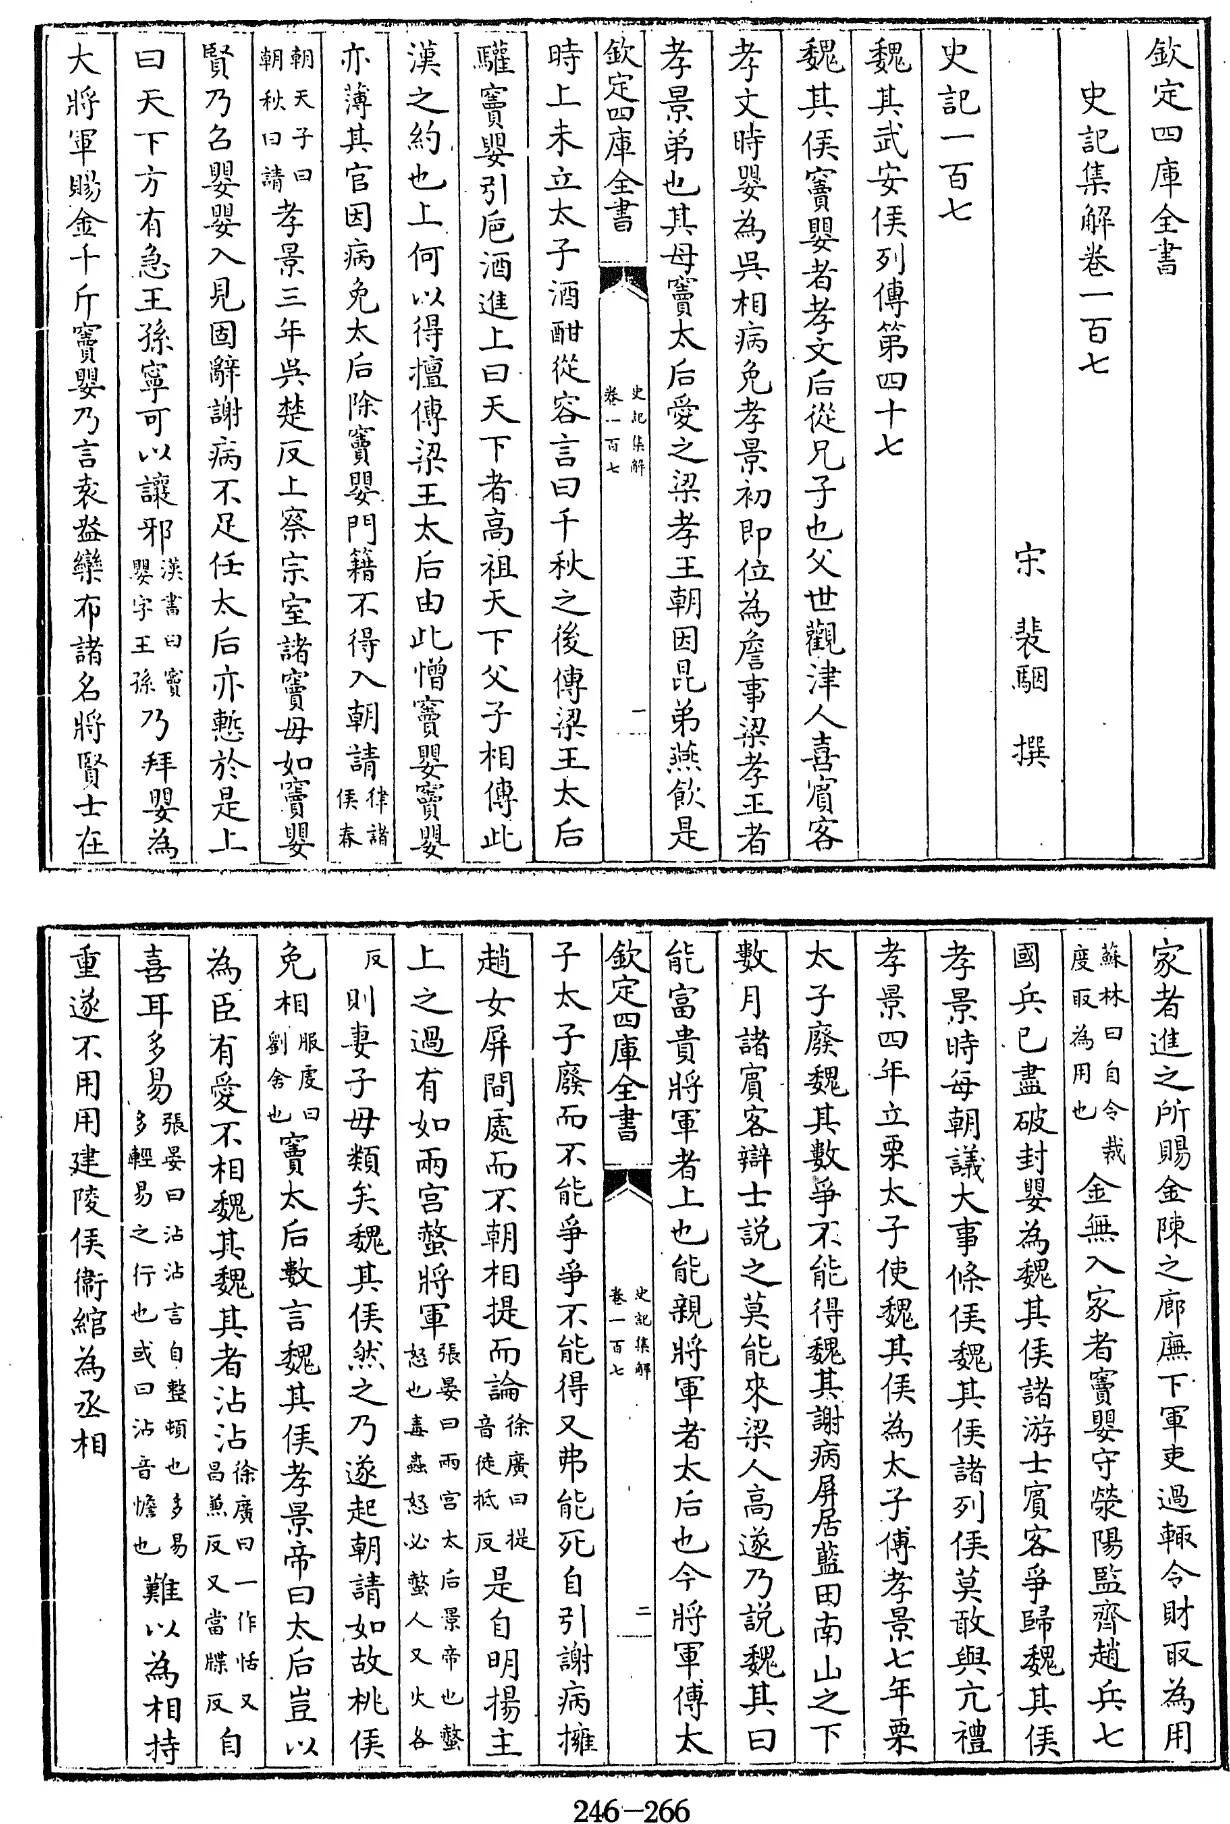 欽定四庫全書
史記集解卷一百七
宋裴駰撰
史記一百七
魏其武安侯列傳第四十七
魏其侯竇嬰者孝文后從兄子也父世觀津人喜賔客
孝文時嬰為吳相病免孝景初即位為詹事梁孝王者
孝景弟也其母竇太后愛之梁孝王朝因昆弟燕飲是
欽定四庫全書
史記集解
卷一百七
一
時上未立太子酒酣從容言曰千秋之後傳梁王太后
驩竇嬰引巵酒進上曰天下者高祖天下父子相傳此
漢之約也上何以得擅傳梁王太后由此憎竇嬰竇嬰
亦薄其官因病免太后除竇嬰門籍不得入朝請律諸侯春
朝天子曰朝秋曰請孝景三年吳楚反上察宗室諸竇毋如竇嬰
賢乃召嬰嬰入見固辭謝病不足任太后亦慙於是上
曰天下方有急王孫寧可以讓邪漢書曰竇嬰字王孫乃拜嬰為
大將軍賜金千斤竇嬰乃言袁盎欒布諸名將賢士在
家者進之所賜金陳之廊廡下軍吏過輒令財取為用
蘇林曰自令裁度取為用也金無入家者竇嬰守滎陽監齊趙兵七
國兵已盡破封嬰為魏其侯諸游士賔客爭歸魏其侯
孝景時每朝議大事條侯魏其侯諸列侯莫敢與亢禮
孝景四年立栗太子使魏其侯為太子傅孝景七年栗
太子廢魏其數爭不能得魏其謝病屏居藍田南山之下
數月諸賔客辯士說之莫能來梁人高遂乃說魏其曰
能富貴將軍者上也能親將軍者太后也今將軍傅太
欽定四庫全書
史記集解
卷一百七
二
子太子廢而不能爭爭不能得又弗能死自引謝病擁
趙女屏間處而不朝相提而論徐廣曰提音徒抵反是自明揚主
上之過有如兩宫螫將軍張晏曰兩宫太后景帝也螫怒也毒蟲怒必螫人又火各
反則妻子毋類矣魏其侯然之乃遂起朝請如故桃侯
免相服虔曰劉舍也竇太后數言魏其侯孝景帝曰太后豈以
為臣有愛不相魏其魏其者沾沾徐廣曰一作怗又昌兼反又當牒反自
喜耳多易張晏曰沾沾言自整頓也多易多輕易之行也或曰沾音幨也難以為相持
重遂不用用建陵侯衛綰為丞相
246-266